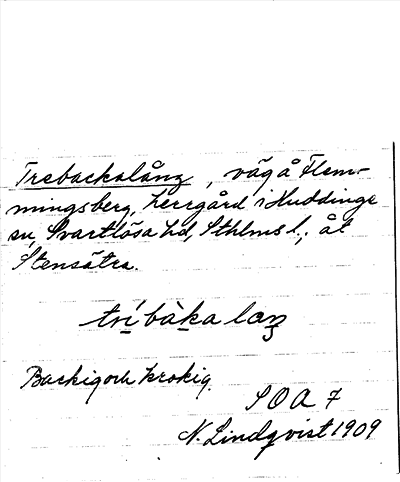 Trebackalång, väg å Flem-
mingsberg, herrgård i Huddinge
sn, Svartlösa hd, Sthlms l., åt
Stensätra.
trí bàka laŋ
Backig och krokig.
SOA 7
N. Lindqvist 1909